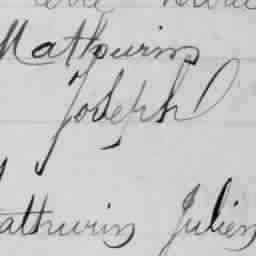 Mathurins
Joseph
athurin Julien